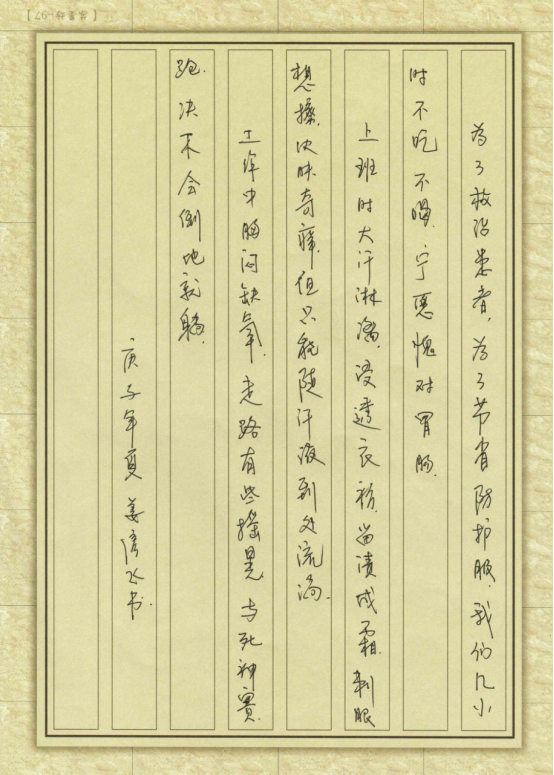 为了救治患者,为了节省防护服,我们几小
时不吃不喝,宁愿愧对胃肠.
上班时大汗淋漓,浸透衣衫,留渍成霜.刺眼
想揉,皮肤奇痒,但只能随汗液到处流淌.
工作中胸闷缺氧,走路有些摇晃,与死神赛
跑,决不会倒地就躺.
庚子年夏 姜 水书.